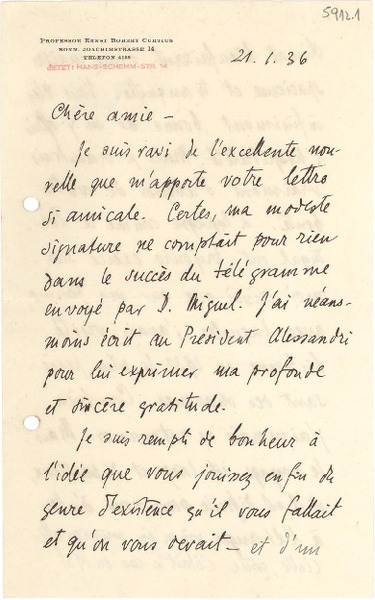 5912.1
PROFESSOR ERNST ROBERT CURTIUS
BONN, JOACHIMSTRASSE 14
TELEFON
JETZT: HANS-SCHEMM-STR. 14
21.1.36
Chère amie –
Je suis ravi de l'excellente nou-
velle que m'apporte votre lettre
si amicale. Certes, ma modeste
signature ne comptait pour rien
dans le succès du télégramme
envoyé par D. Miguel. J'ai néans-
moins écrit au Président Alessandri
pour lui exprimer ma profonde
et sincère gratitude.
Je suis rempli de bonheur à
l'idée que vous jouissez enfin du
genre d'existence qu'il vous fallait
et qu'on vous devait – et d'un